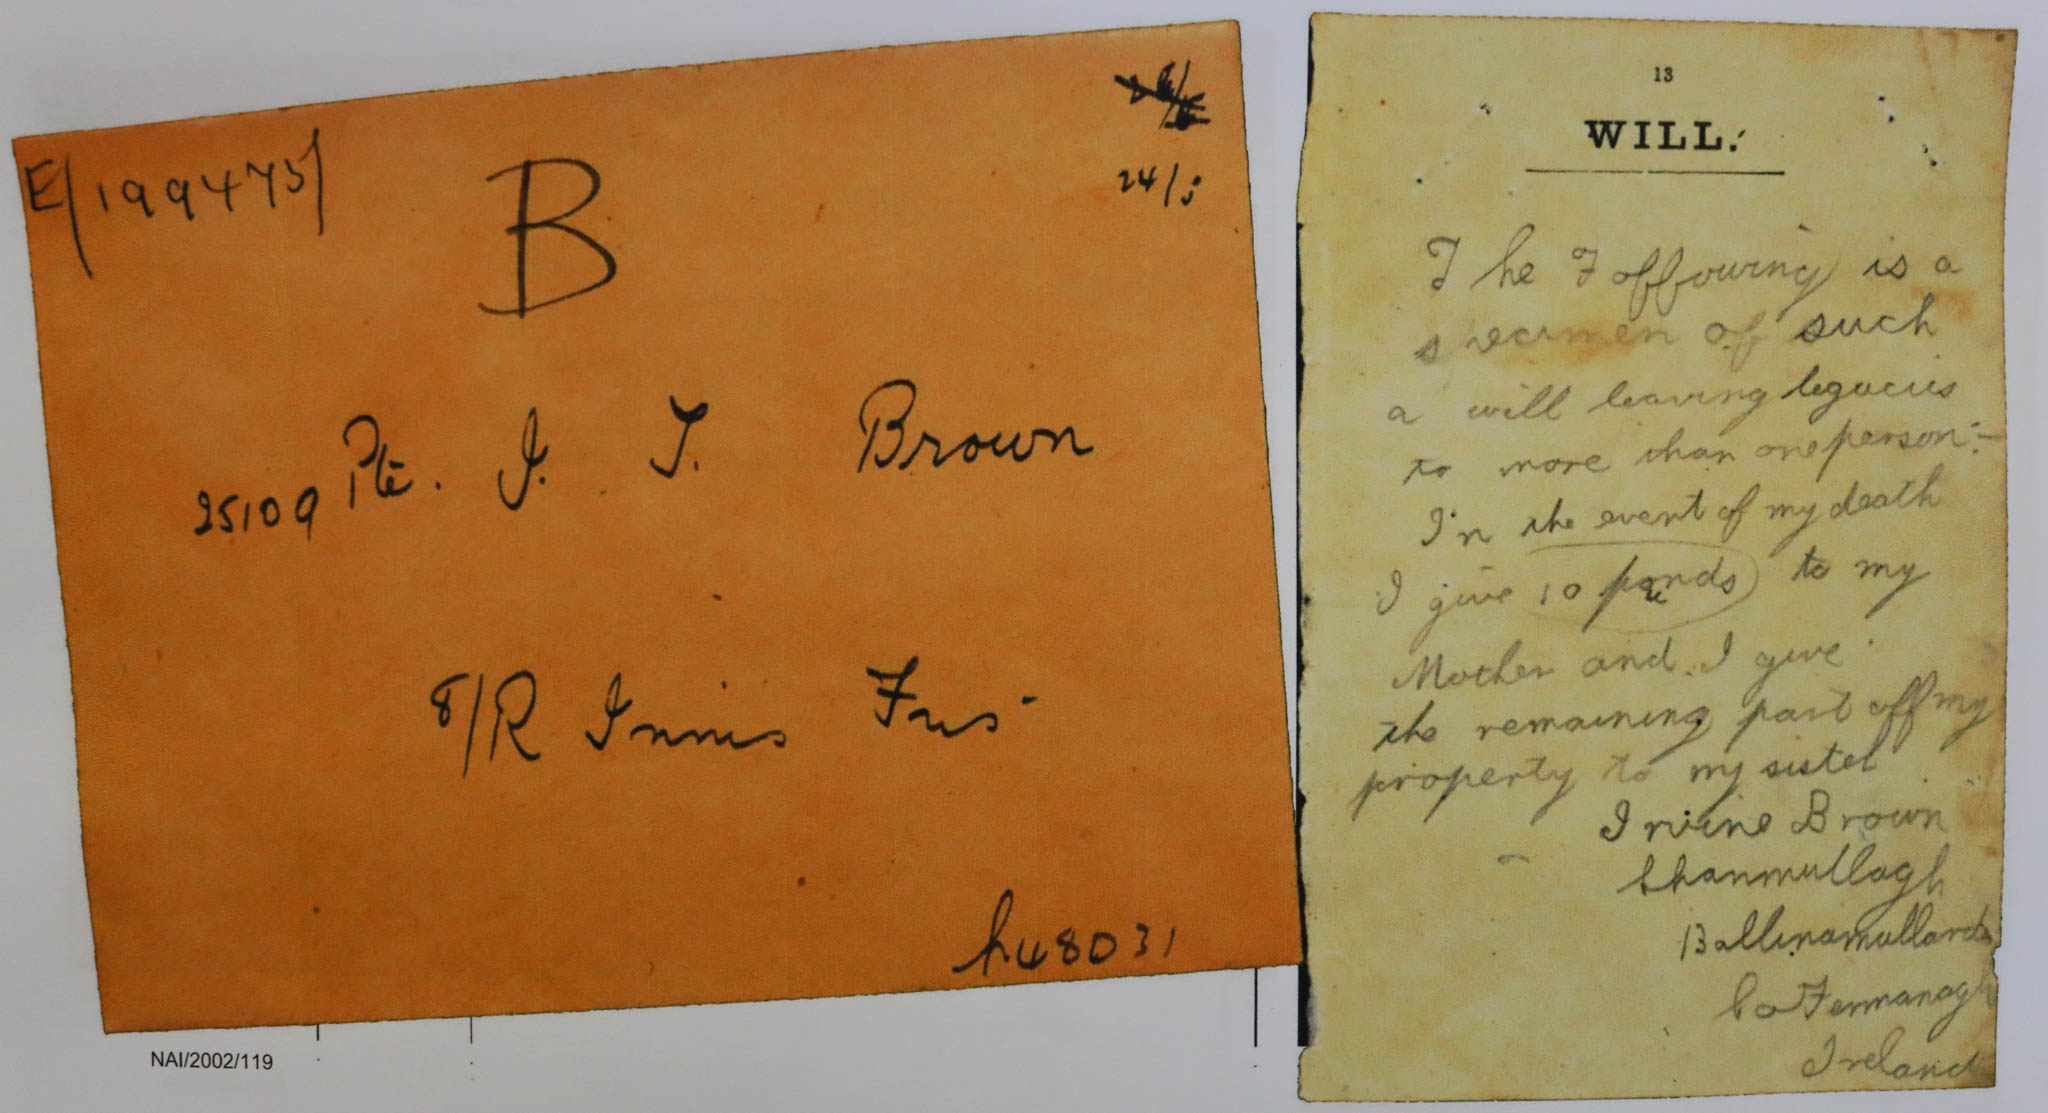 E/199475/
24/5
B
25109 Pte. I. T. Brown
8/R Innis Fus
h48031
NAI/2002/119
13
WILL.
The Foffouring is a
specimen of such
a will leaving legacies
to more than one person:-
In the event of my death
I give 10 pounds to my
Mother and I give
the remaining part off my
property to my sister
Irvine Brown
Shanmullagh
Ballinamullard
Co Fermanagh
Ireland